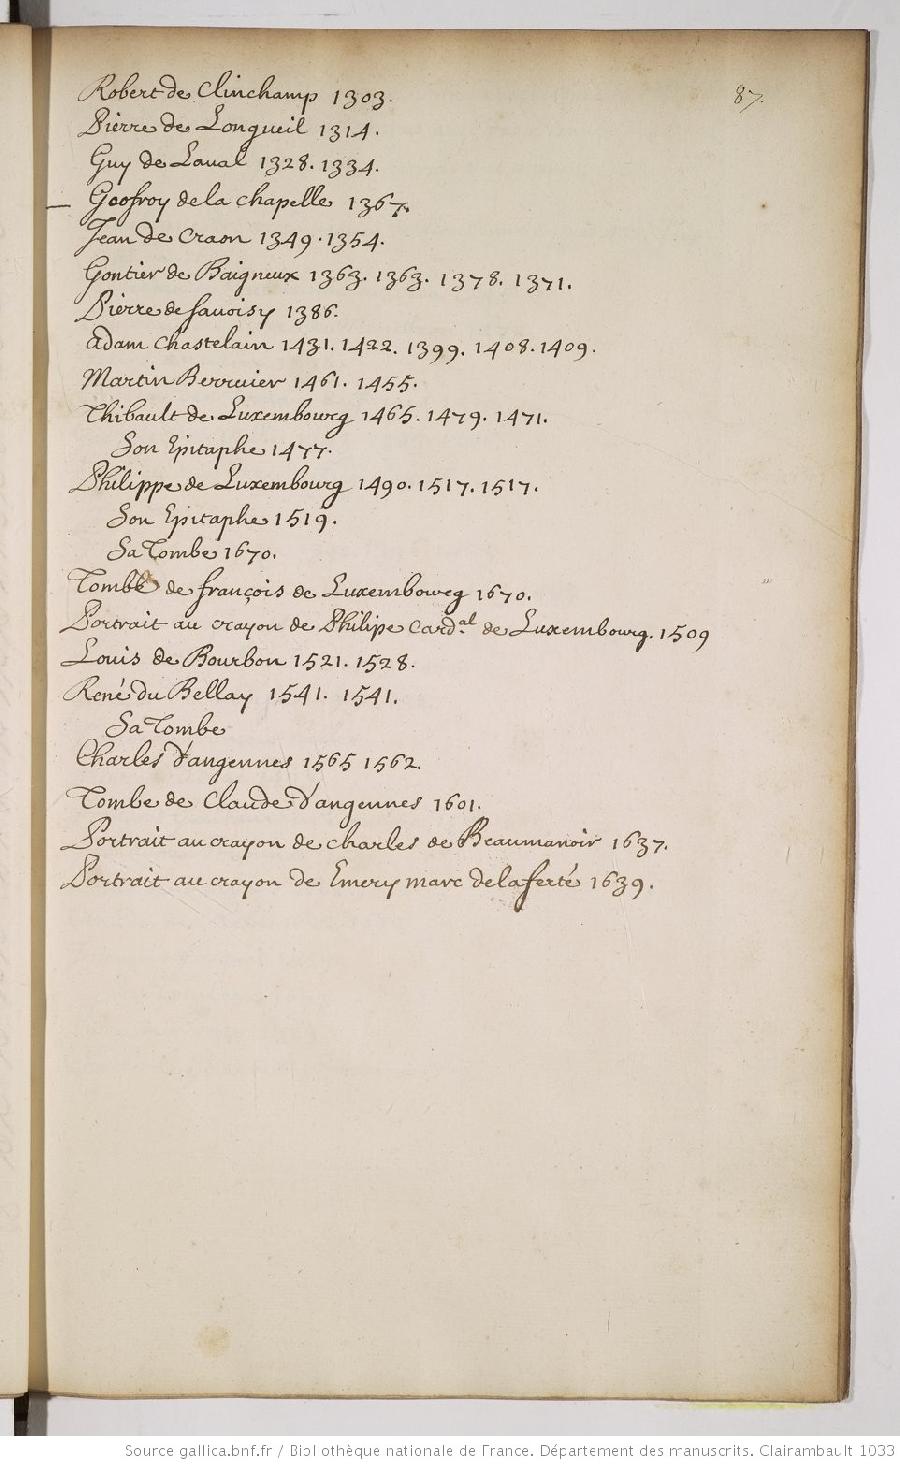 87.
Robert de Clinchamp 1303.
Pierre de Longueil 1314.
Guy de Laual 1328. 1334.
Geofroy de la chapelle 1367.
Jean de Craon 1349. 1354.
Gontier de Baigneux 1363. 1363. 1378. 1371.
Pierre de Sauoisy 1386.
Adam Chastelain 1431. 1422. 1399. 1408. 1409.
Martin Berruier 1461. 1455.
Thibault de Luxembourg 1465. 1479. 1471.
Son Epitaphe 1477.
Philippe de Luxembourg 1490. 1517. 1517.
Son Epitaphe 1519.
Sa Tombe 1670.
Tombe de françois de Luxembourg 1670.
Portrait au crayon de Philipe Card.al de Luxembourg. 1509
Louis de Bourbon 1521. 1528.
René du Bellay 1541. 1541.
Sa Tombe
Charles d'angennes 1565 1562.
Tombe de Claude d'angennes 1601.
Portrait au crayon de charles de Beaumanoir 1637.
Portrait au crayon de Emery marc de la ferté 1639.
Source gallica.bnf.fr / Bibliothèque nationale de France. Département des manuscrits. Clairambault 1033